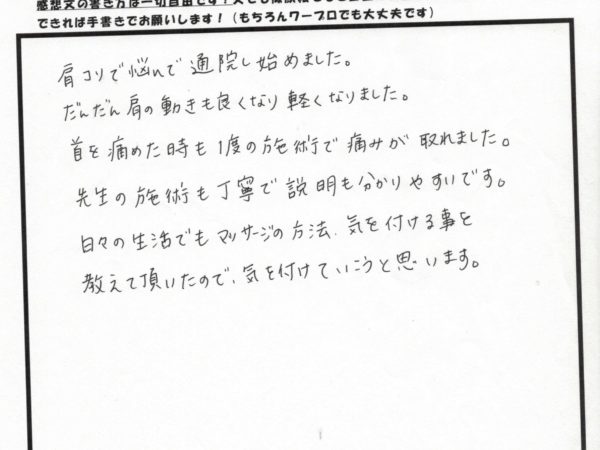 感想文の書き方は一切自由です！
できれば手書きでお願いします！（もちろんワープロでも大丈夫です）
肩コリで悩んで通院し始めました。
だんだん肩の動きも良くなり軽くなりました。
首を痛めた時も1度の施術で痛みが取れました。
先生の施術も丁寧で説明も分かりやすいです。
日々の生活でもマッサージの方法、気を付ける事を
教えて頂いたので、気を付けていこうと思います。